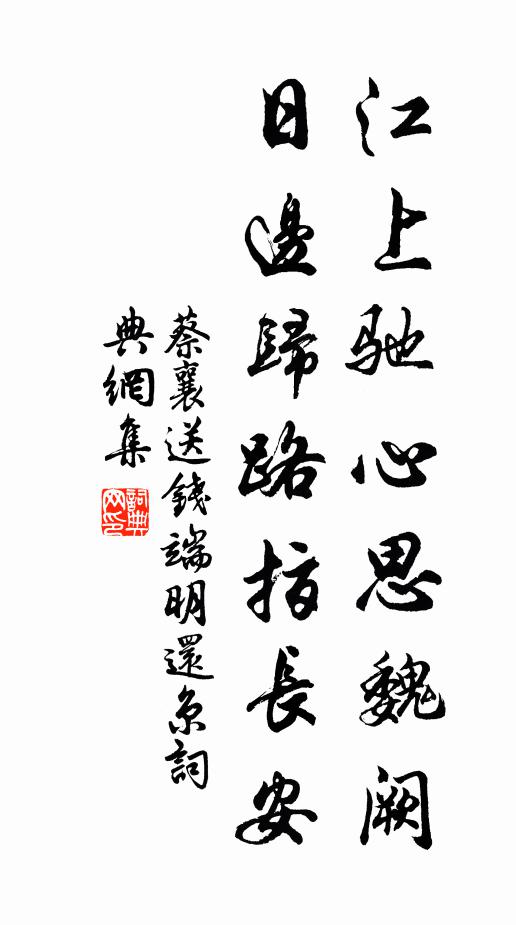 江上驰心思魏阙
日邊歸路指長安
蔡襄送錢端明還京詞
典網集
詞典
网印